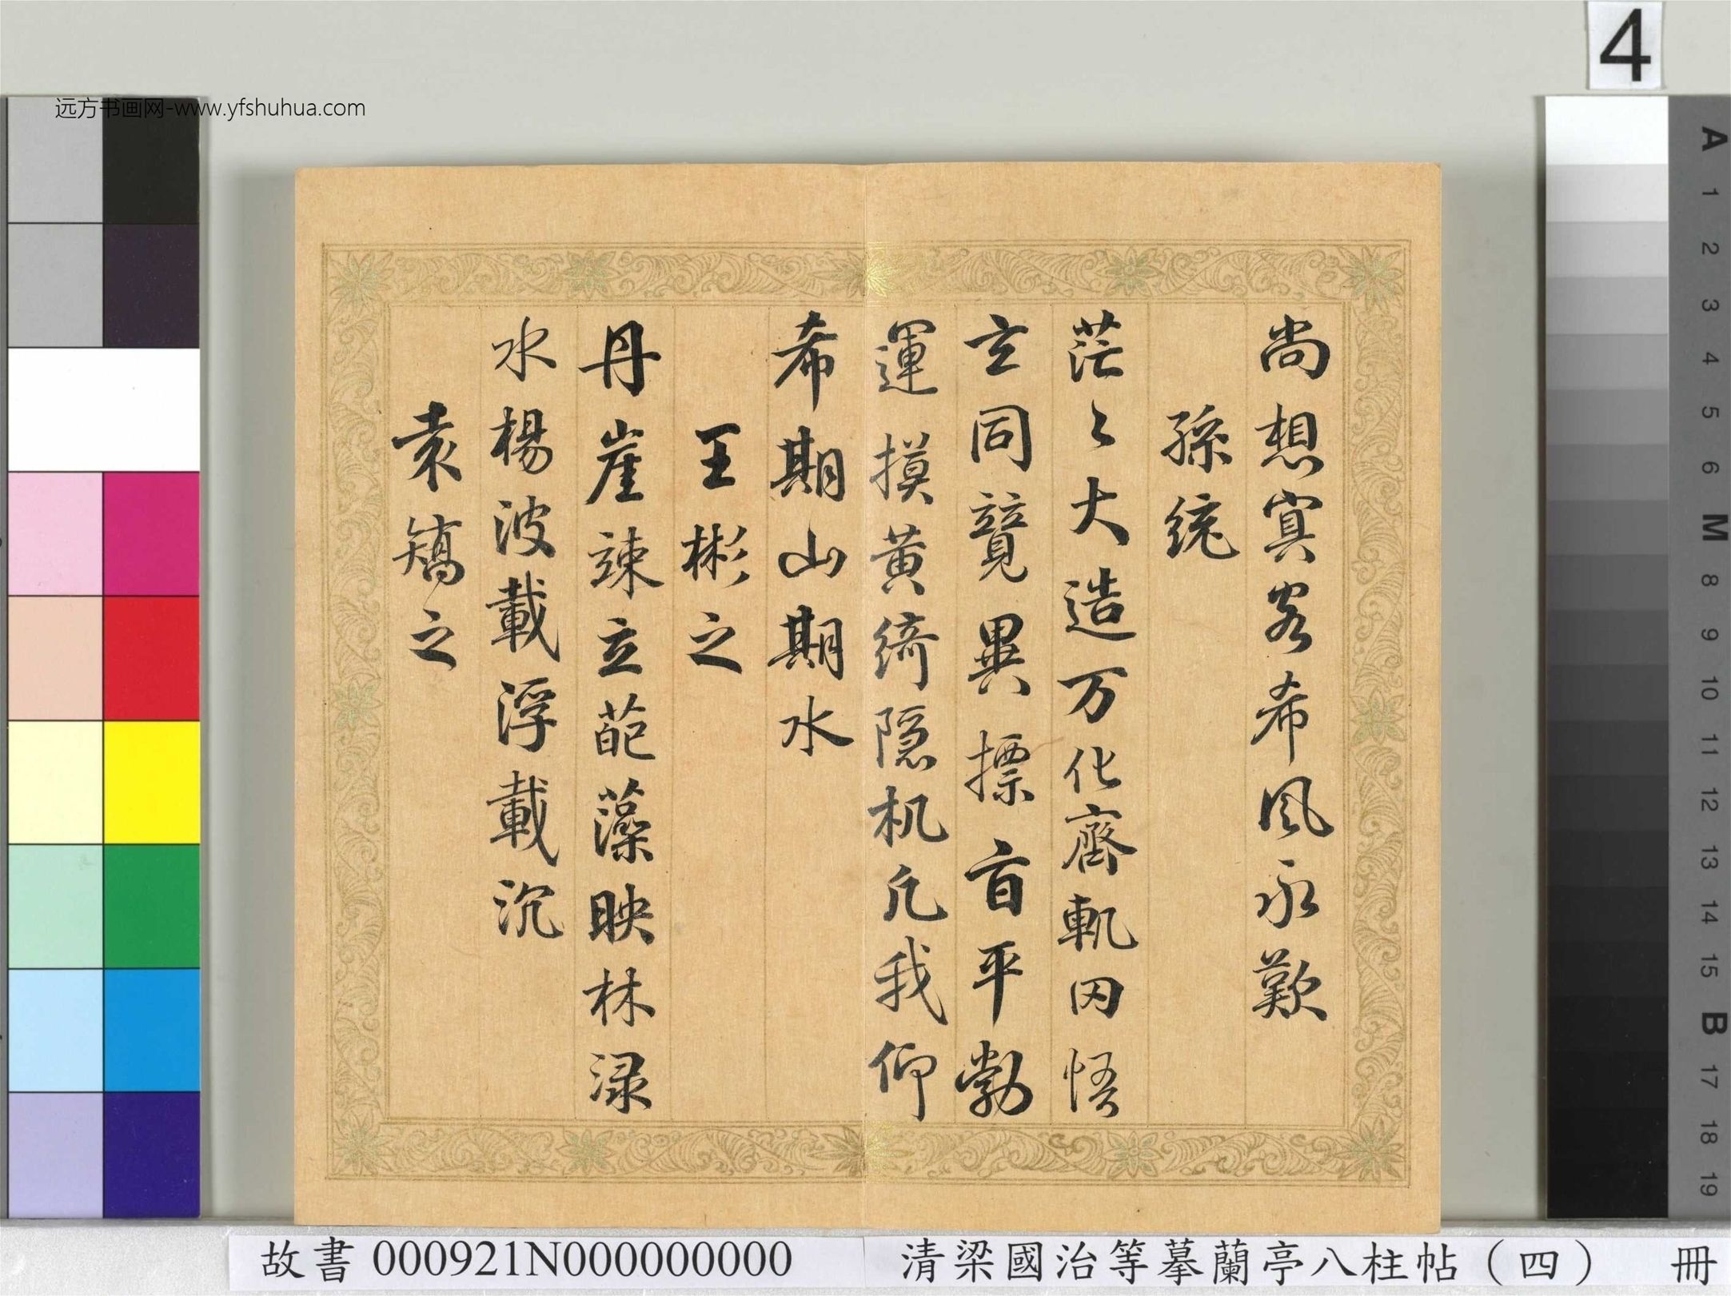 4
远方书画网-www.yfshuhua.com
尚想冥客希風永歎
孫統
茫〻大造万化齊軌罔悟
玄同競異摽旨平勃
運摸黄綺隐机凢我仰
希期山期水
王彬之
丹崖竦立葩藻映林渌
水楊波載浮載沉
袁矯之
A
1
2
3
4
5
6
M
8
9
10
11
12
13
14
15
B
17
18
19
故書 000921N000000000
清梁國治等摹蘭亭八柱帖（四） 冊